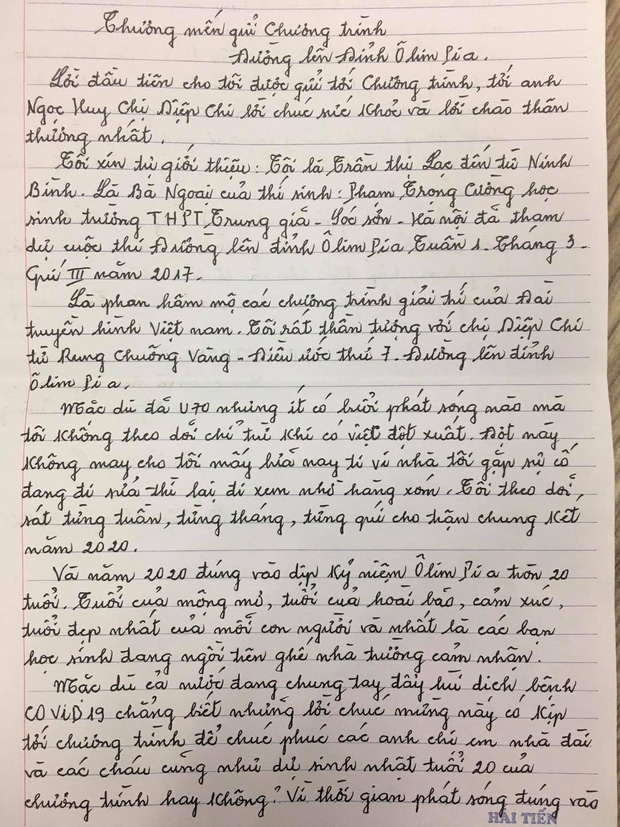 Thương mến gửi Chương trình
Đường lên Đỉnh Ôlim Pia.
Lời đầu tiên cho tôi được gửi tới Chương trình, tới anh
Ngọc Huy Chị Diệp Chi lời chúc sức khỏe và lời chào thân
thương nhất.
Tôi xin tự giới thiệu: Tôi là Trần thị Lạc đến từ Ninh
Bình. Là Bà Ngoại của thí sinh: Phạm Trọng Cường học
sinh trường THPT Trung giã - Sóc sơn - Hà nội đã tham
dự cuộc thi Đường lên đỉnh Ôlim Pia Tuần 1 - Tháng 3 -
Quí III năm 2017.
Là phan hâm mộ các chương trình giải trí của Đài
truyền hình Việt nam. Tôi rất thần tượng với chị Diệp Chi
từ Rung Chuông Vàng - Điều ước thứ 7. Đường lên đỉnh
Ôlim Pia.
Mặc dù đã U70 nhưng ít có buổi phát sóng nào mà
tôi không theo dõi chỉ trừ khi có việc đột xuất. Đợt này
không may cho tôi mấy hôm nay ti vi nhà tôi gặp sự cố
đang đi sửa thì lại đi xem nhờ hàng xóm. Tôi theo dõi,
sát từng tuần, từng tháng, từng quí cho trận chung kết
năm 2020.
Và năm 2020 đúng vào dịp Kỷ niệm Ôlim Pia tròn 20
tuổi. Tuổi của mộng mơ, tuổi của hoài bão, cảm xúc,
tuổi đẹp nhất của mỗi con người và nhất là các bạn
học sinh đang ngồi trên ghế nhà trường cảm nhận.
Mặc dù cả nước đang chung tay đẩy lùi dịch bệnh
COViD19 chẳng biết những lời chúc mừng này có kịp
tới chương trình để chúc phúc các anh chị em nhà đài
và các cháu cũng như dự sinh nhật tuổi 20 của
chương trình hay không? Vì thời gian phát sóng đúng vào
HẢI TIẾN